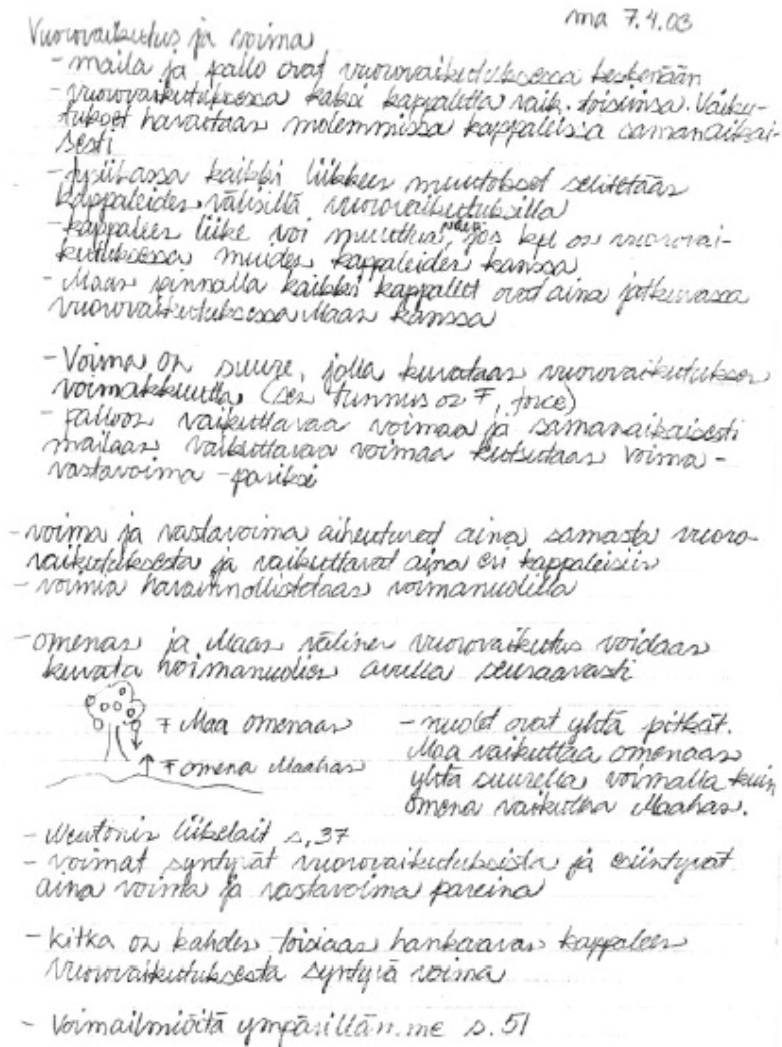 ma 7.4.03
Vuorovaikutus ja voima
- maila ja pallo ovat vuorovaikutuksessa keskenään
- vuorovaikutuksessa kaksi kappaletta vaik. toisiinsa. Vaiku-
tukset havaitaan molemmissa kappaleissa samanaikai-
sesti
- fysiikassa kaikki liikkeen muutokset selitetään
kappaleiden välisillä vuorovaikutuksilla
- kappaleen liike voi muuttua, vain jos kpl on vuorovai-
kutuksessa muiden kappaleiden kanssa
- Maan pinnalla kaikki kappaleet ovat aina jatkuvassa
vuorovaikutuksessa Maan kanssa
- Voima on suure, jolla kuvataan vuorovaikutuksen
voimakkuutta (sen tunnus on F, force)
- palloon vaikuttavaa voimaa ja samanaikaisesti
mailaan vaikuttavaa voimaa kutsutaan voima -
vastavoima - pariksi
- voima ja vastavoima aiheutuvat aina samasta vuoro-
vaikutuksesta ja vaikuttavat aina eri kappaleisiin
- voimia havainnollistetaan voimanuolilla
- omenan ja Maan välinen vuorovaikutus voidaan
kuvata voimanuolien avulla seuraavasti
F Maa omenaan
F omena Maahan
- nuolet ovat yhtä pitkät.
Maa vaikuttaa omenaan
yhtä suurella voimalla kuin
omena vaikuttaa Maahan.
- Newtonin liikelait s. 37
- voimat syntyvät vuorovaikutuksista ja esiintyvät
aina voima ja vastavoima pareina
- Kitka on kahden toisiaan hankaavan kappaleen
vuorovaikutuksesta syntyvä voima
- Voimailmiöitä ympärillämme s. 51